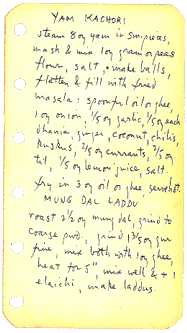 YAM KACHORI
steam 8 oz yam in 5m pieces,
mash & mix 1 oz gram or peas
flour, salt, make balls,
flatten & fill with fried
masala: spoonful oil or ghee,
1 oz onion, 1/5 oz garlic, 1/5 oz each
dhania, ginger, coconut, chilis,
khuskhus, 2/5 oz currants, 2/5 oz
til, 1/5 oz lemon juice, salt.
fry in 3 oz oil or ghee serve hot.
MUNG DAL LADDU
roast 3 1/2 oz mung dal, grind to
coarse pwd, grind 1 3/5 oz gur
fine, mix both with 1 oz ghee,
heat for 5" mix well & + 1
elaichi, make laddus.